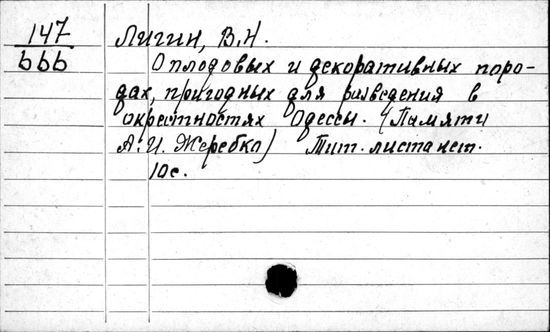 147 Лигин, В.Н.
666 О плодовых и декоративных поро-
дах, пригодных для разведения в
окрестностях Одессы. (Памяти
А.И. Жеребко) Тит. листа нет.
10с.